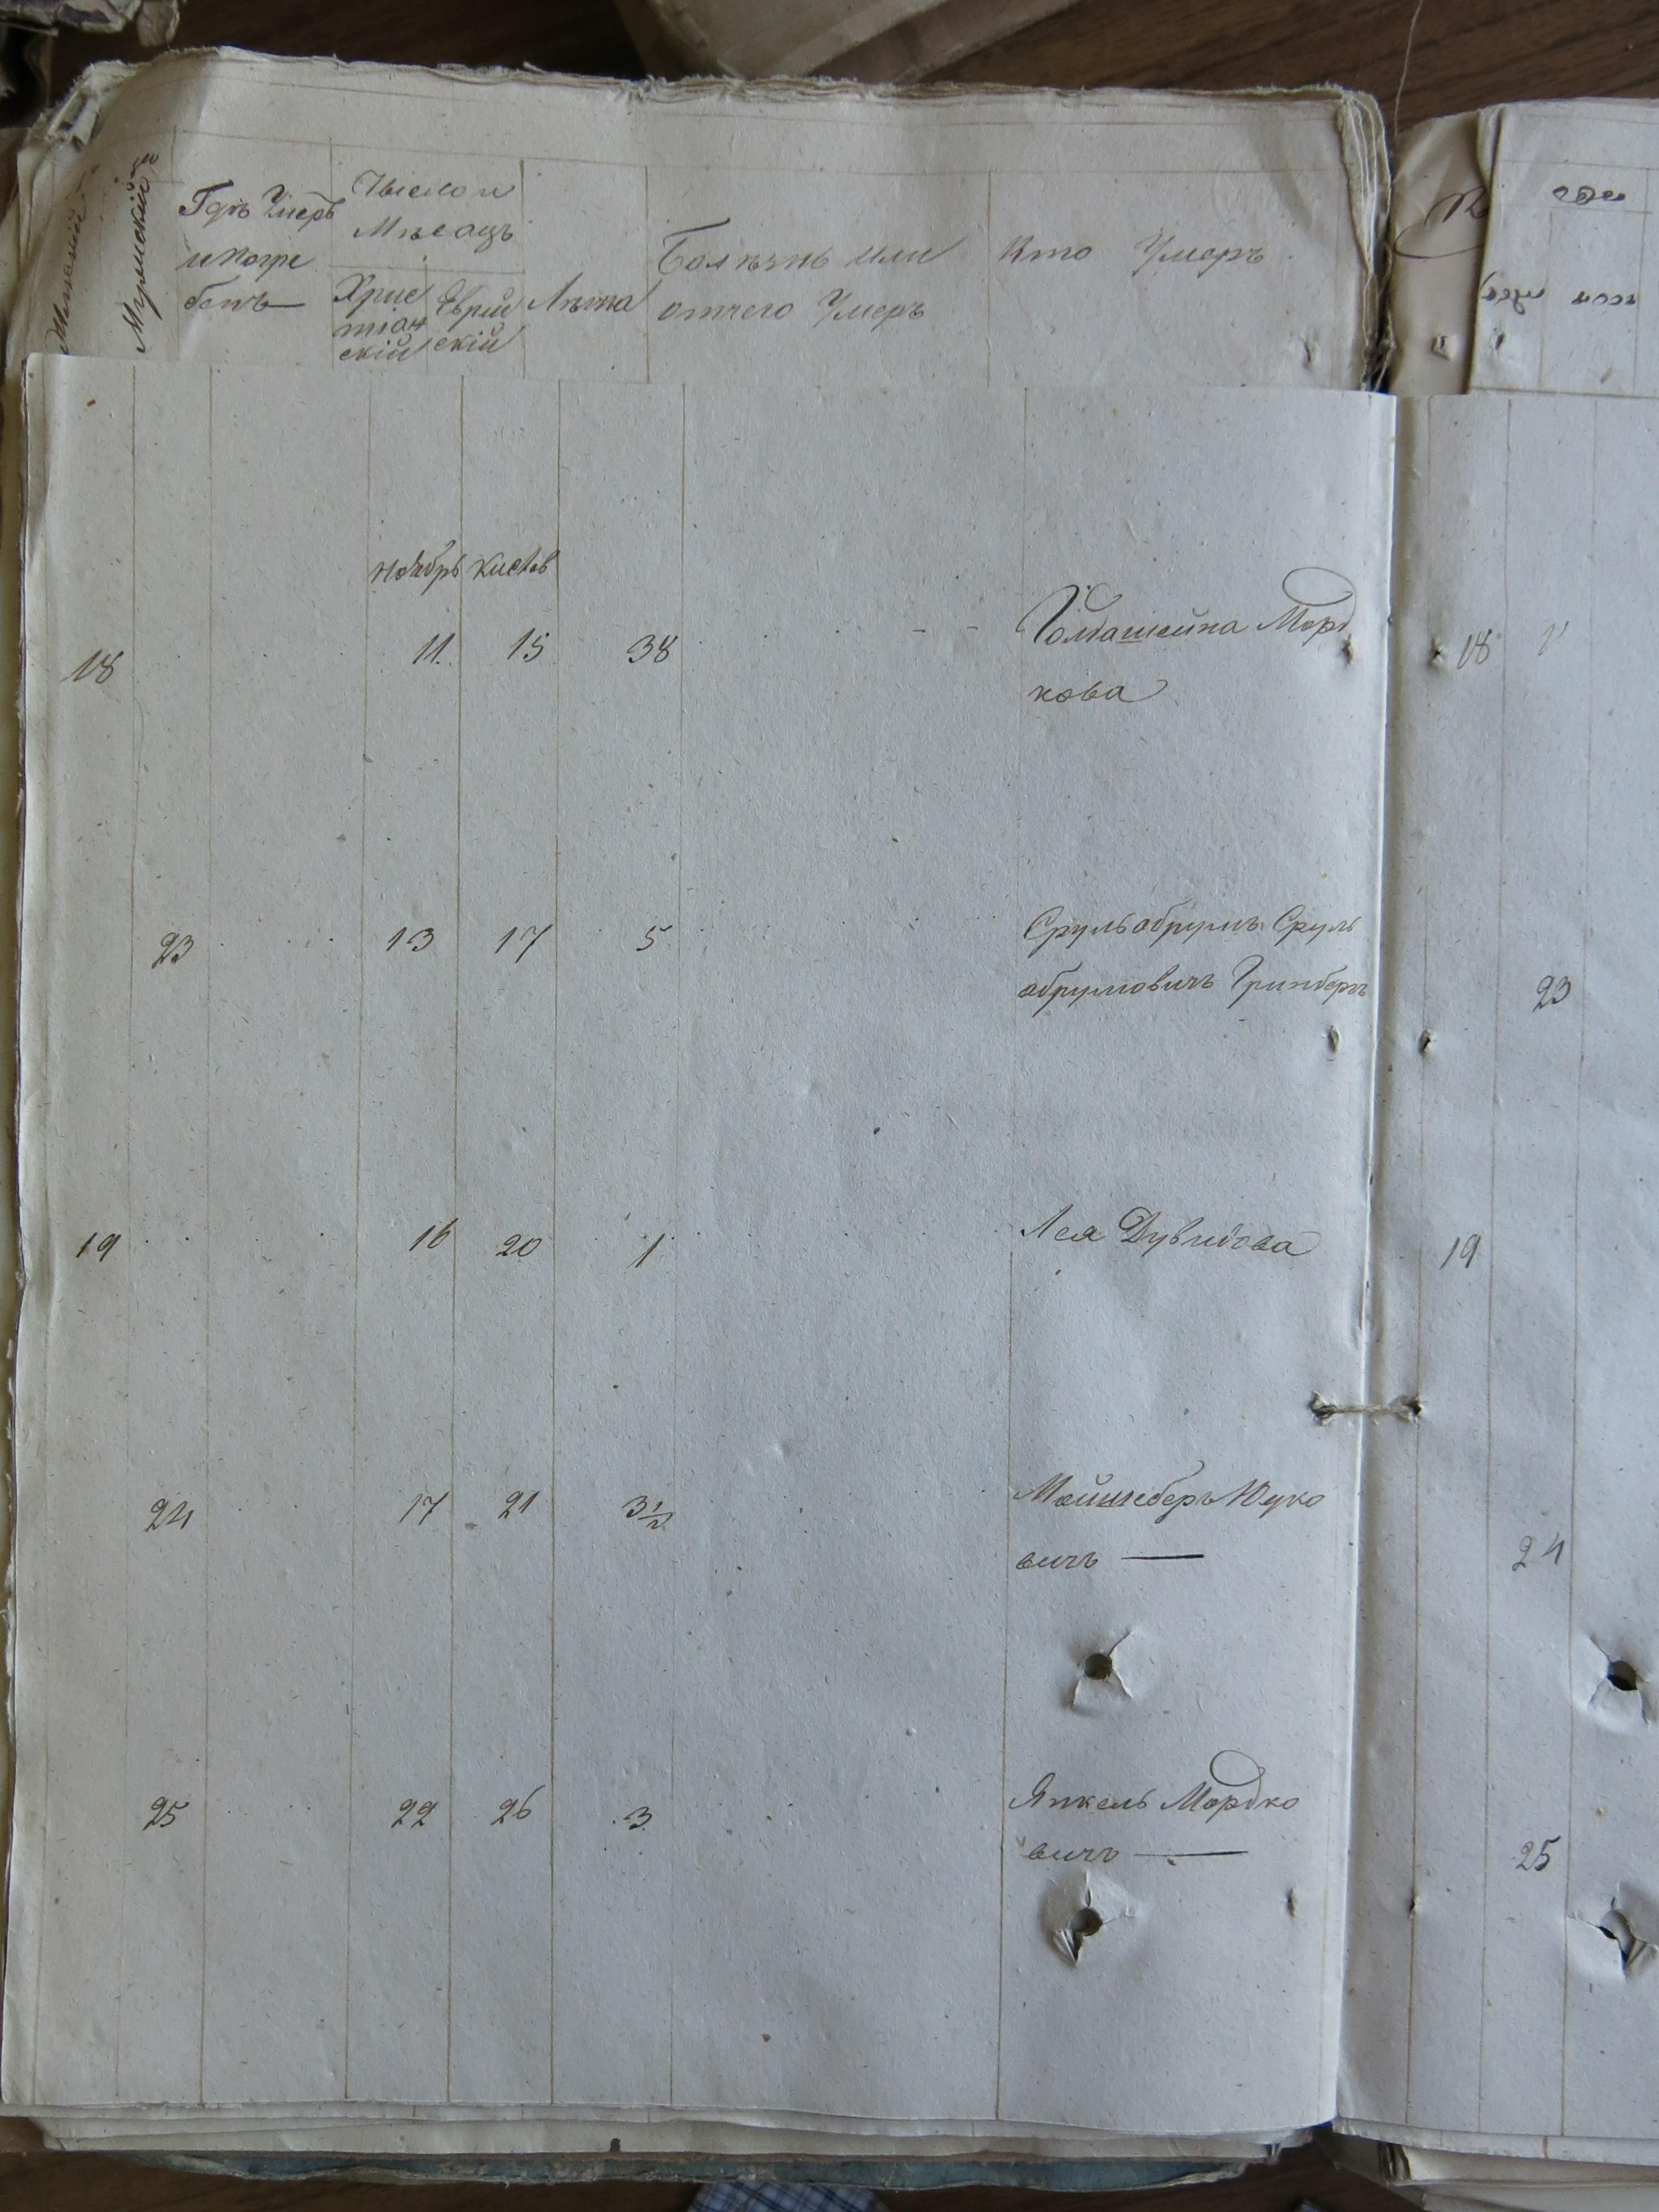 Женскій
Мужескій
Гдѣ Умеръ
и Погре
бенъ
Число и
Мѣсацъ
Хрис
тіан
скій
Еврей
скій
Лѣта
Болѣзнь или
отчего Умеръ
Кто Умеръ
ноябрь кислев
18 11. 15 38 ГолдашейнаМорд
кова
18
23 13 17 5 Срульабрумъ Сруль
абрумовичъ Гринберъ
23
19 16 20 1 Лея Дувидова
19
24 17 21 3½ Мойшеберъ Ицко
вичъ —
24
25 22 26 3 Янкель Мордко
вичъ —
25